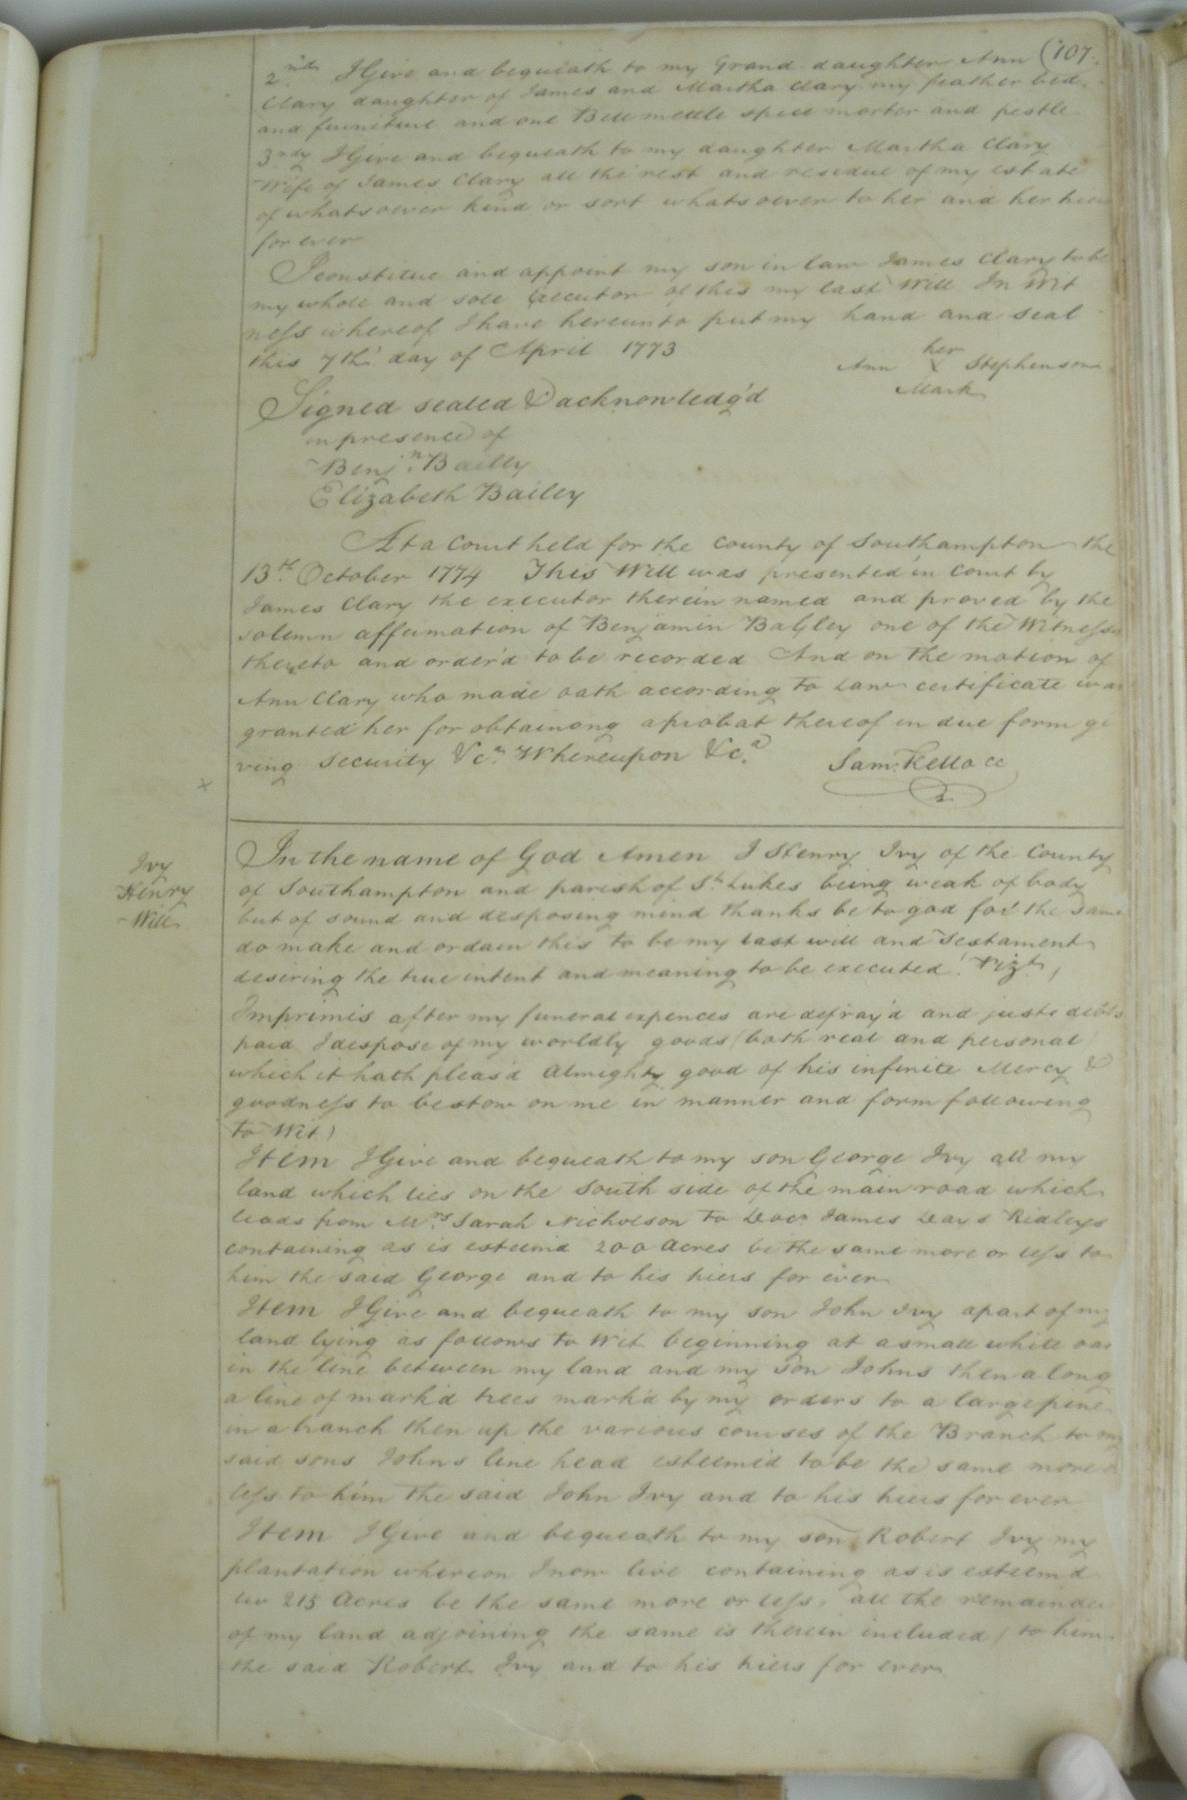 (107.
2nd I Give and bequeath to my Grand daughter Ann
Clary daughter of James and Martha Clary my feather bed
and furniture and one Bell mettle spice morter and pestle
3rdly I Give and bequeath to my daughter Martha Clary
Wife of James Clary all the rest and residue of my estate
of whatsoever kind or sort whatsoever to her and her hiers
for ever
I constitue and appoint my son in law James Clary to be
my whole and sole Executor of this my last Will In Wit
ness whereof I have hereunto put my hand and seal
this 7th day of April 1773
her
Ann X Stephenson
Mark
Signed sealed & acknowledg'd
in presence of
Benjn. Bailey
Elizabeth Bailey
At a Court held for the County of Southampton the
13th. October 1774 This Will was presented in Court by
James Clary the executor therein named and proved by the
solemn affirmation of Benjamin Bailey one of the Witnesses
thereto and order'd to be recorded And on the motion of
Ann Clary who made oath according to Law certificate was
granted her for obtainong a probat thereof in due form gi
ving Security &ca. Whereupon &ca.
Sam: Kello CC
x
Ivy
Henry
Will
In the name of God Amen I Henry Ivy of the County
of Southampton and parish of St. Lukes being weak of body
but of sound and desposing mind thanks be to god for the same
do make and ordain this to be my last will and Testament
desiring the true intent and meaning to be executed Vizt,
Imprimis after my funeral expences are defray'd and juste debts
paid I despose of my worldly goods (both real and personal
which it hath pleas'd Almighty good of his infinite Mercy &
goodness to bestow on me in manner and form following
to Wit)
Item I Give and bequeath to my son George Ivy all my
land which lies on the South side of the main road which
leads from Mrs. Sarah Nicholson to Docr James Days Ridleys
containing as is esteemd 200 Acres be the same more or less to
him the said George and to his hiers for ever
Item I Give and bequeath to my son John Ivy apart of my
land lying as follows to Wit beginning at a small white oak
in the line between my land and my son Johns then along
a line of mark'd trees mark'd by my orders to a large pine
in a branch then up the various courses of the Branch to my
said sons Johns line head esteem'd to be the same more or
less to him the said John Ivy and to his hiers for ever
Item I Give and bequeath to my son Robert Ivy my
plantation whereon I now live containing as is esteem'd
215 Acres be the same more or less, all the remainder
of my land adjoining the same is therein included) to him
the said Robert Ivy and to his hiers for ever